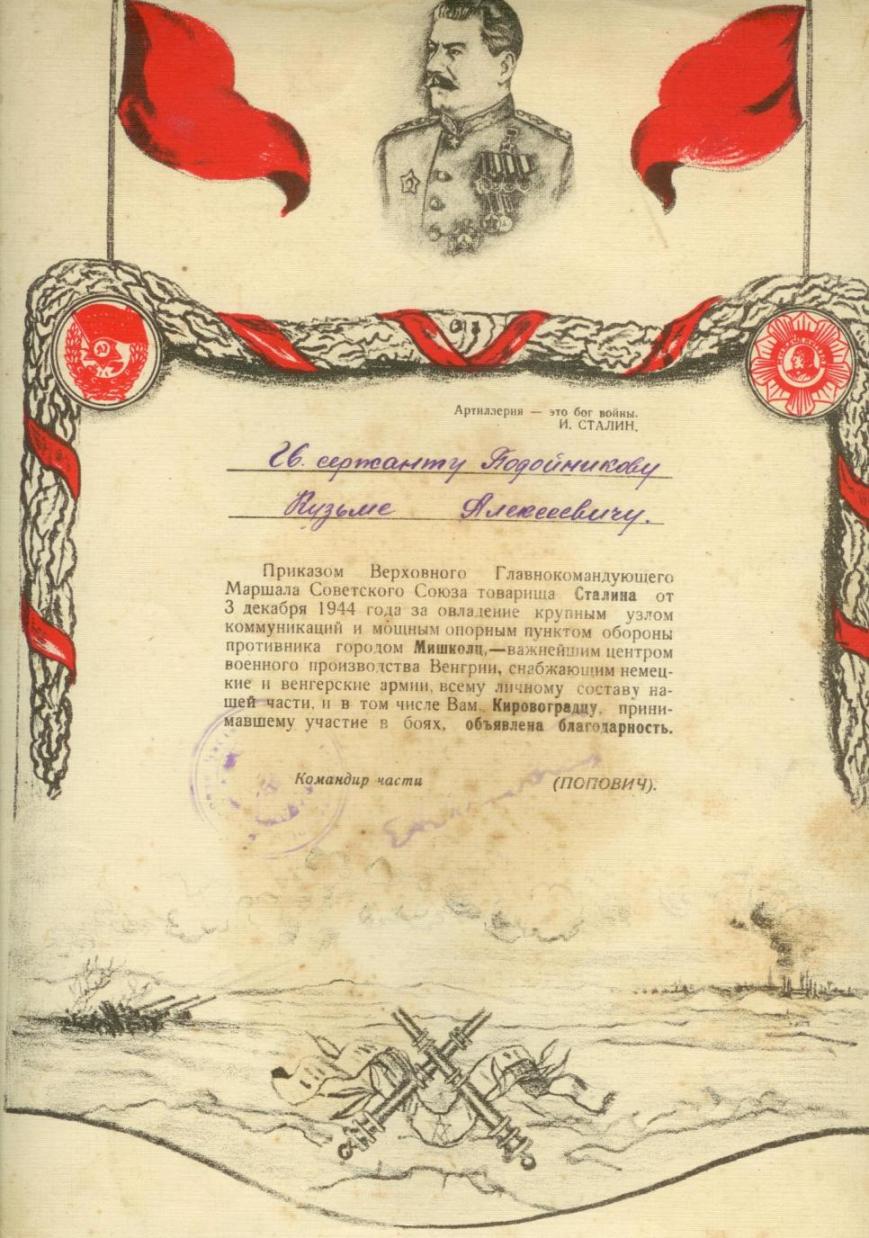 Артиллерия — это бог войны.
И. СТАЛИН.
Гв. сержанту Подойникову
Кузьме Алексеевичу.
Приказом Верховного Главнокомандующего
Маршала Советского Союза товарища Сталина от
3 декабря 1944 года за овладение крупным узлом
коммуникаций и мощным опорным пунктом обороны
противника городом Мишколц,—важнейшим центром
военного производства Венгрии, снабжающим немец-
кие и венгерские армии, всему личному составу на-
шей части, и в том числе Вам, Кировоградцу, прини-
мавшему участие в боях, объявлена благодарность.
Командир части (ПОПОВИЧ).